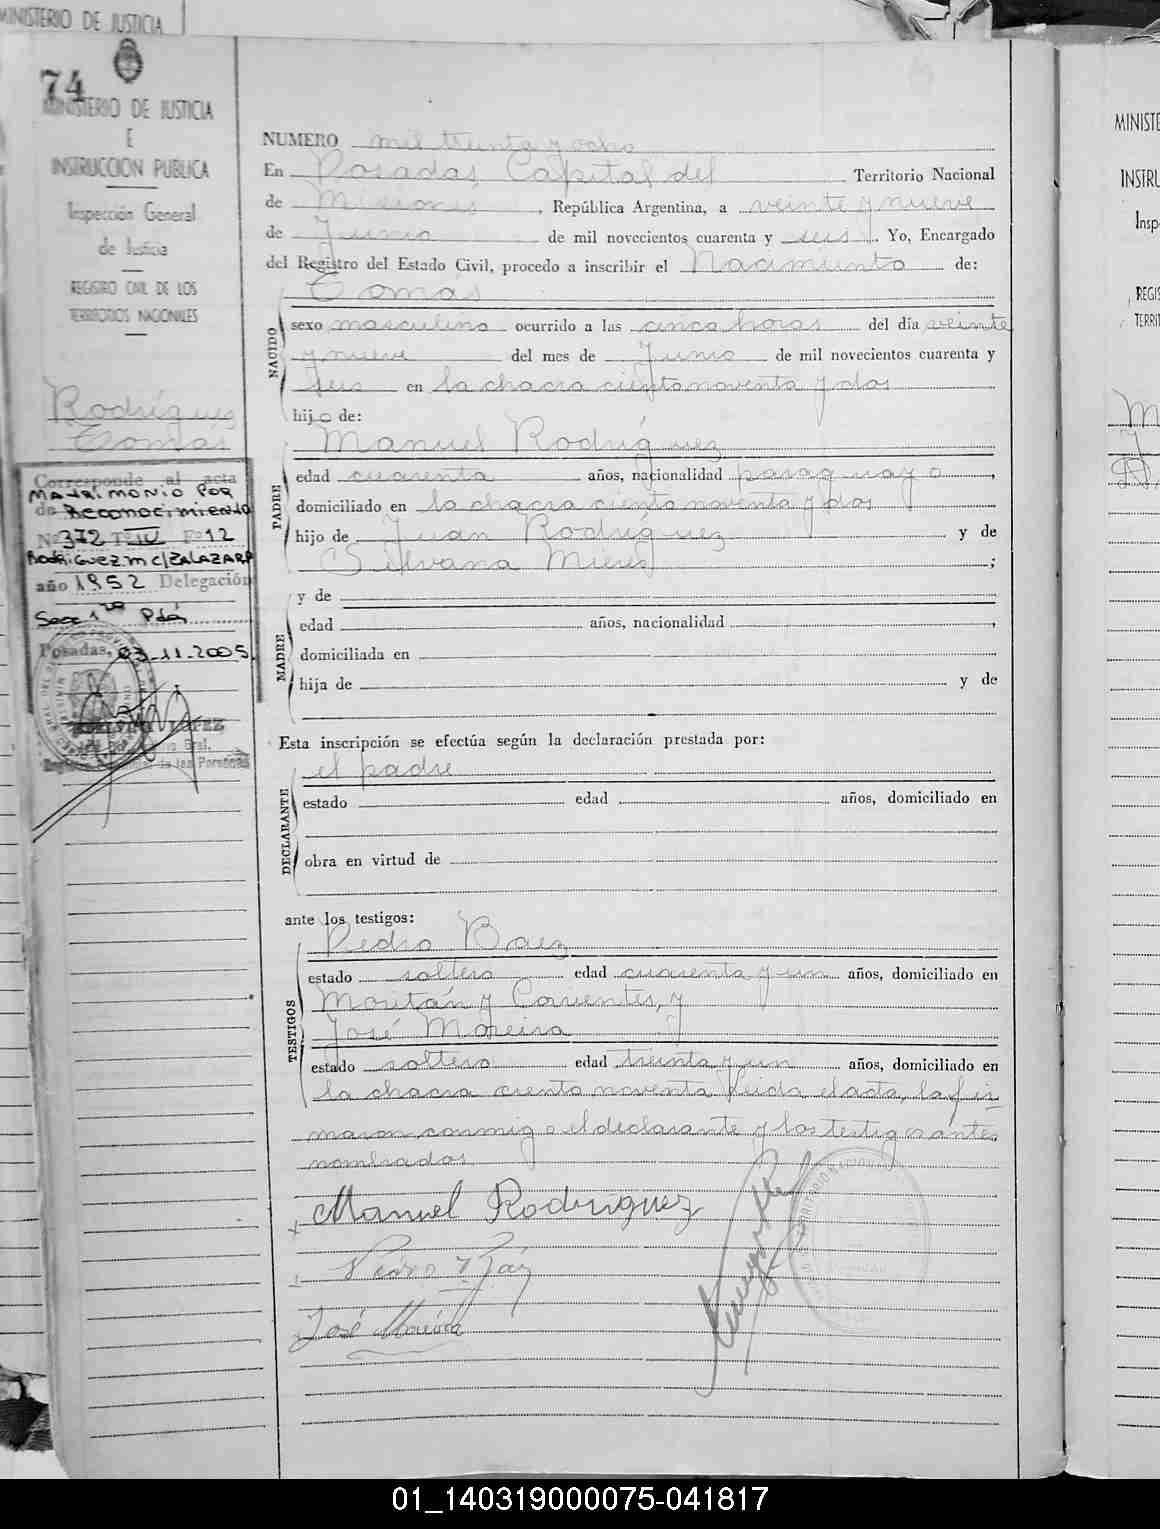 MINISTERIO DE JUSTICIA
74
MINISTERIO DE JUSTICIA
E
INSTRUCCION PUBLICA
Inspección General
de Justicia
REGISTRO CIVIL DE LOS
TERRITORIOS NACIONALES
Rodríguez
Tomás
Corresponde al acta
MATRIMONIO POR
de Reconocimiento
Nº 372 T IV Fº 12
RODRIGUEZ. M C/ZALAZAR P
año 1952 Delegación
Secc 1ra Pdas
Posadas, 03-11-2005
LOPEZ
de las Personas
NUMERO mil treinta y ocho
En Posadas, Capital del Territorio Nacional
de Misiones, República Argentina, a veinte y nueve
de Junio de mil novecientos cuarenta y seis. Yo, Encargado
del Registro del Estado Civil, procedo a inscribir el Nacimiento de:
Tomás
NACIDO
sexo masculino ocurrido a las cinco horas del día veinte
y nueve del mes de Junio de mil novecientos cuarenta y
seis en la chacra ciento noventa y dos
hijo de:
Manuel Rodríguez
PADRE
edad cuarenta años, nacionalidad paraguayo,
domiciliado en la chacra ciento noventa y dos
hijo de Juan Rodríguez y de
Silvana Mieres;
y de
MADRE
edad años, nacionalidad,
domiciliada en
hija de y de
Esta inscripción se efectúa según la declaración prestada por:
el padre
DECLARANTE
estado edad años, domiciliado en
obra en virtud de
ante los testigos:
Pedro Baez
TESTIGOS
estado soltero edad cuarenta y un años, domiciliado en
Moritán y Corrientes, y
José Moreira
estado soltero edad treinta y un años, domiciliado en
la chacra ciento noventa. Leida el acta, la fir-
maron conmigo el declarante y los testigos antes
nombrados.
Manuel Rodriguez
Pedro Báez
José Moreira
MINISTE
INSTRU
Insp
REGIS
TERRIT
01_140319000075-041817